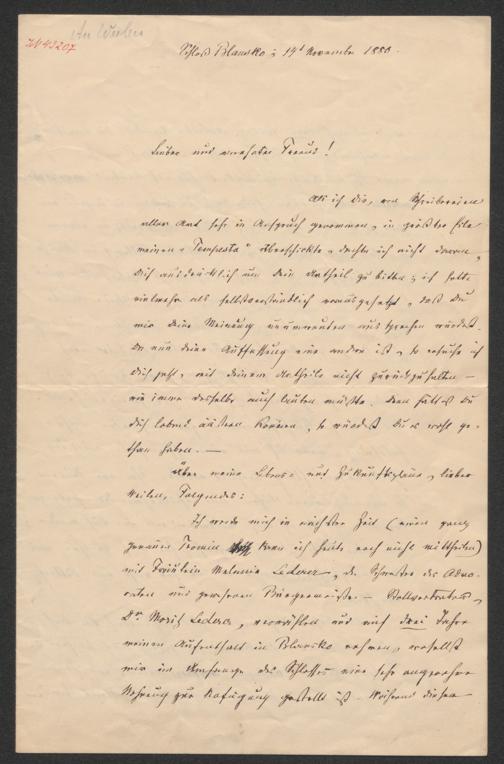 IN 43207
An Weilen
Schloß Blansko; 14t November 1880.
Lieber und verehrter Freund!
Als ich dir, von Schreibereien
aller Art sehr in Anspruch genommen, in größter Eile
meinen „Tempesta“ überschickte, dachte ich nicht daran,
dich ausdrücklich um dein Urtheil zu bitten; ich hatte
vielmehr als selbstverständlich vorausgesetzt, daß du
mir deine Meinung unumwunden aussprechen würdest.
Da nun deine Auffassung eine andere ist, so ersuche ich
dich jetzt, mit deinem Urtheile nicht zurückzuhalten –
wie immer dasselbe auch lauten möchte. Denn hättest du
dich lobend äußern können, so würdest du es wohl ge-
than haben. —
Über meine Lebens- und Zukunftspläne, lieber
Weilen, Folgendes:
Ich werde mich in nächster Zeit (einen ganz
genauen Termin kann ich heute noch nicht mittheilen)
mit Fräulein Melanie Lederer, der Schwester des Advo-
caten und gewesenen Bürgermeister-Stellvertreters,
Dr. Moriz Lederer, vermählen und auf drei Jahre
meinen Aufenthalt in Blansko nehmen, woselbst
mir im des Schlosses eine sehr angenehme
Wohnung zur Verfügung gestellt ist. Während dieser